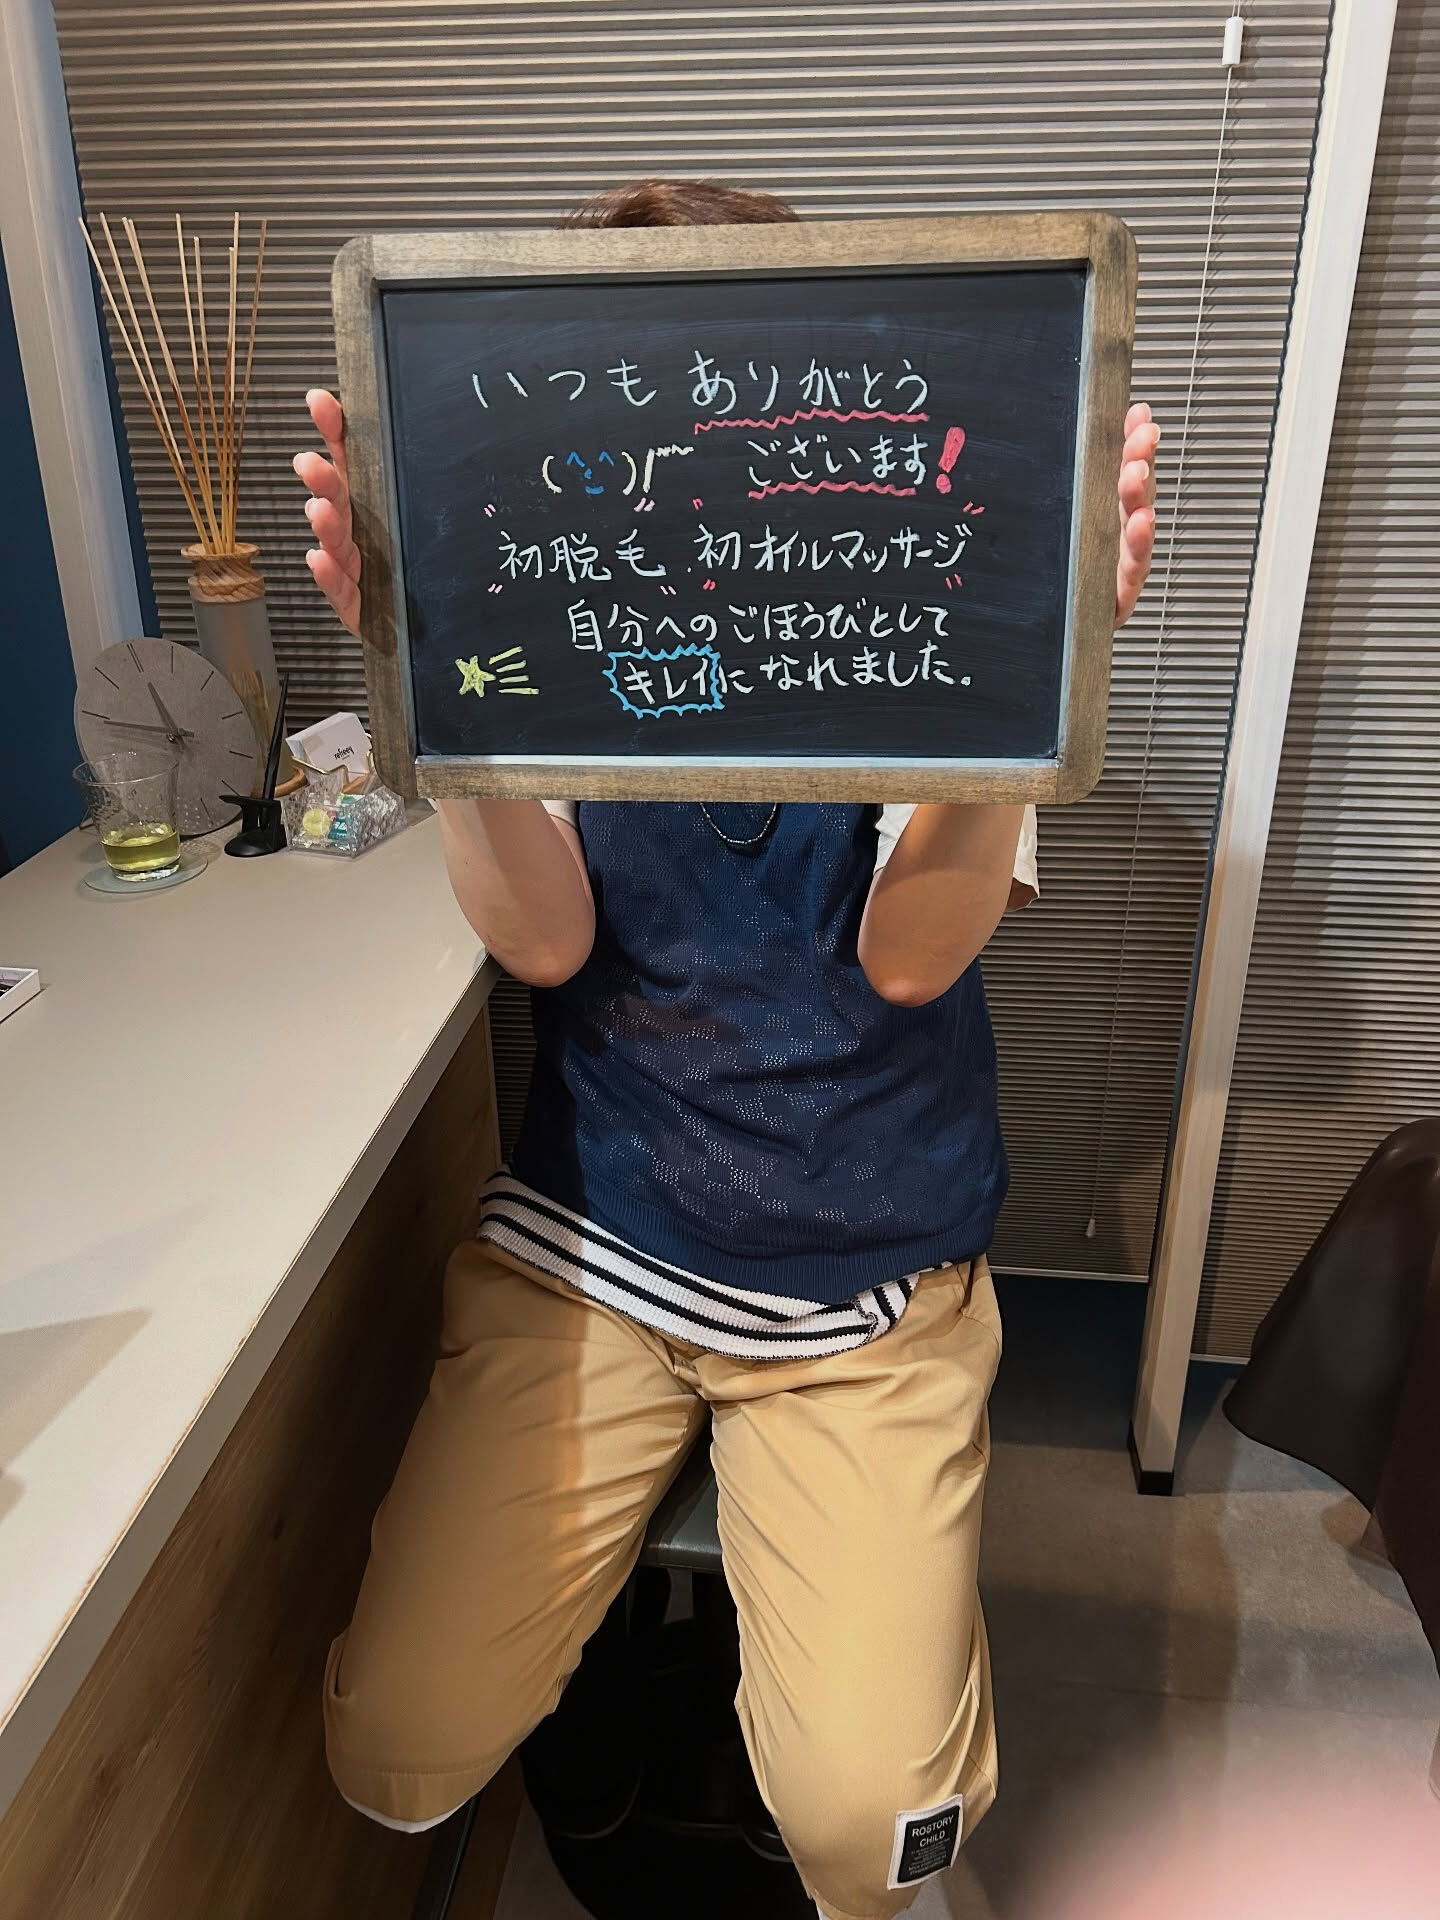 いつもありがとう
ございます!
初脱毛.初オイルマッサージ
自分へのごほうびとして
キレイになれました。
refeeq
ROSTORY
CHILD